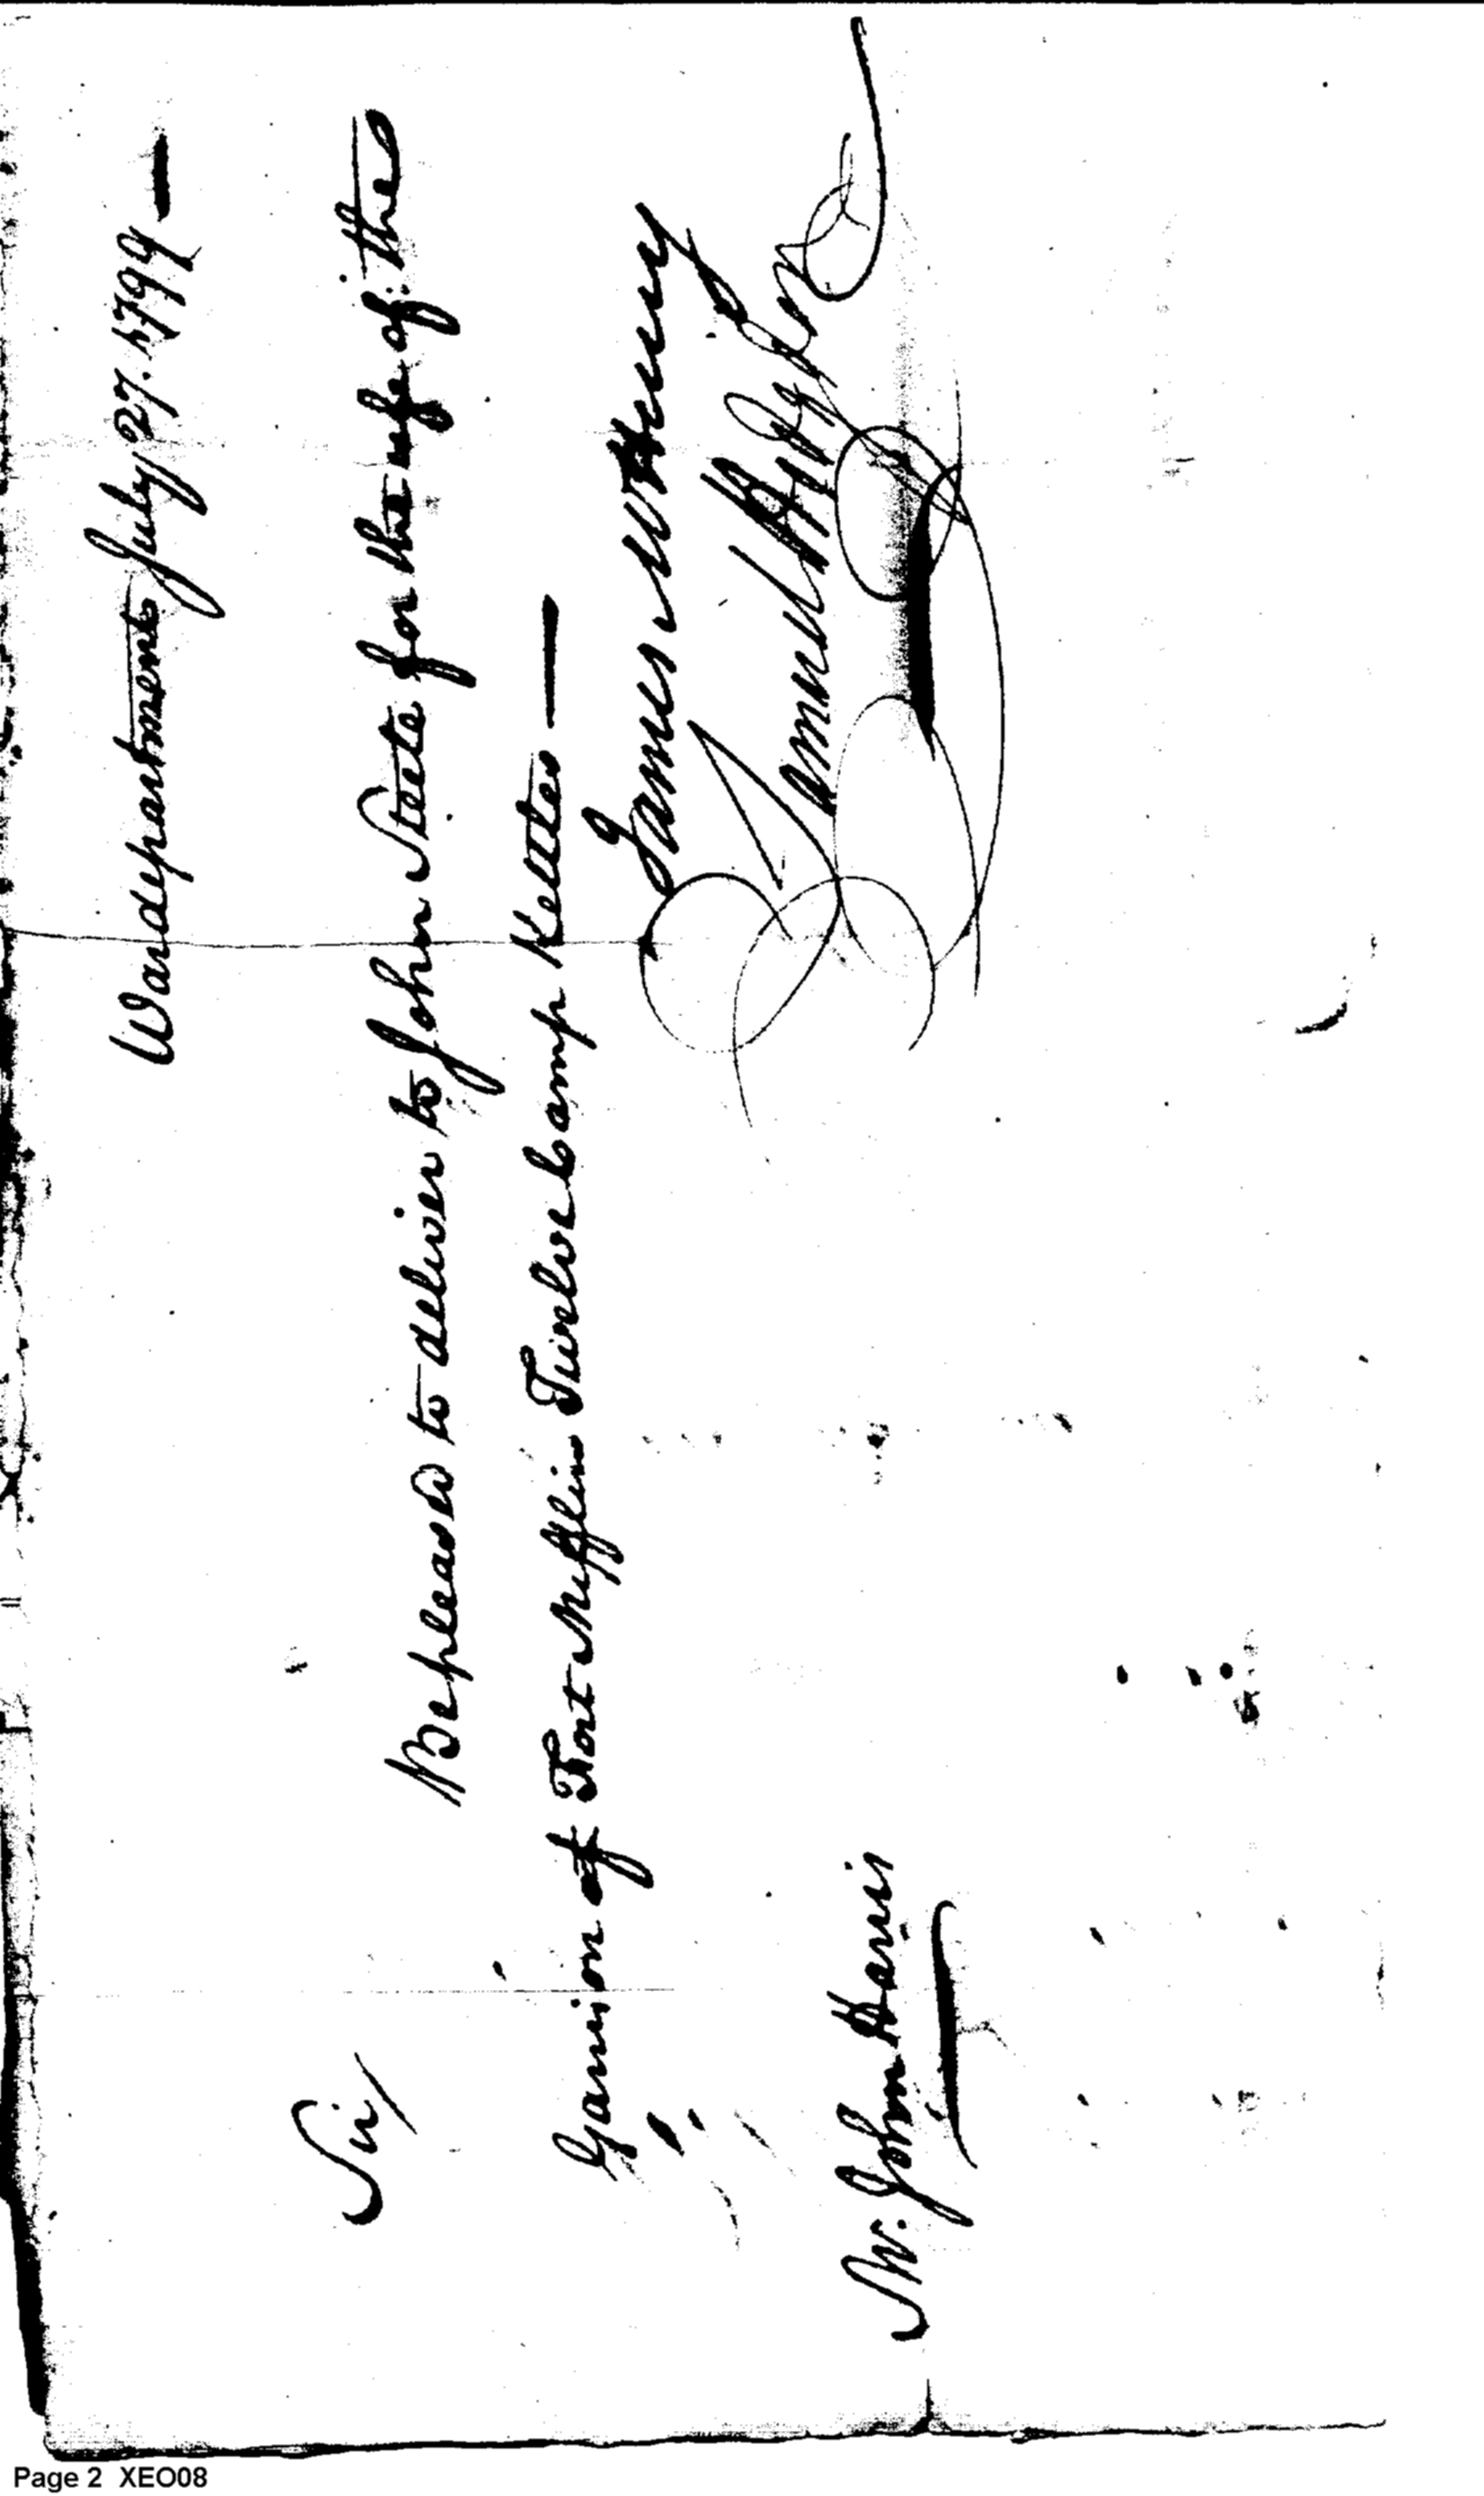 War department July 27. 1799 —
Sir/
Be pleased to deliver to John Steele for the use of the
Garrison of Fort Mifflin Twelve Camp Kettles —
James McHenry
Samuel Hodgdon
Mr. John Harris
Page 2 XEO08